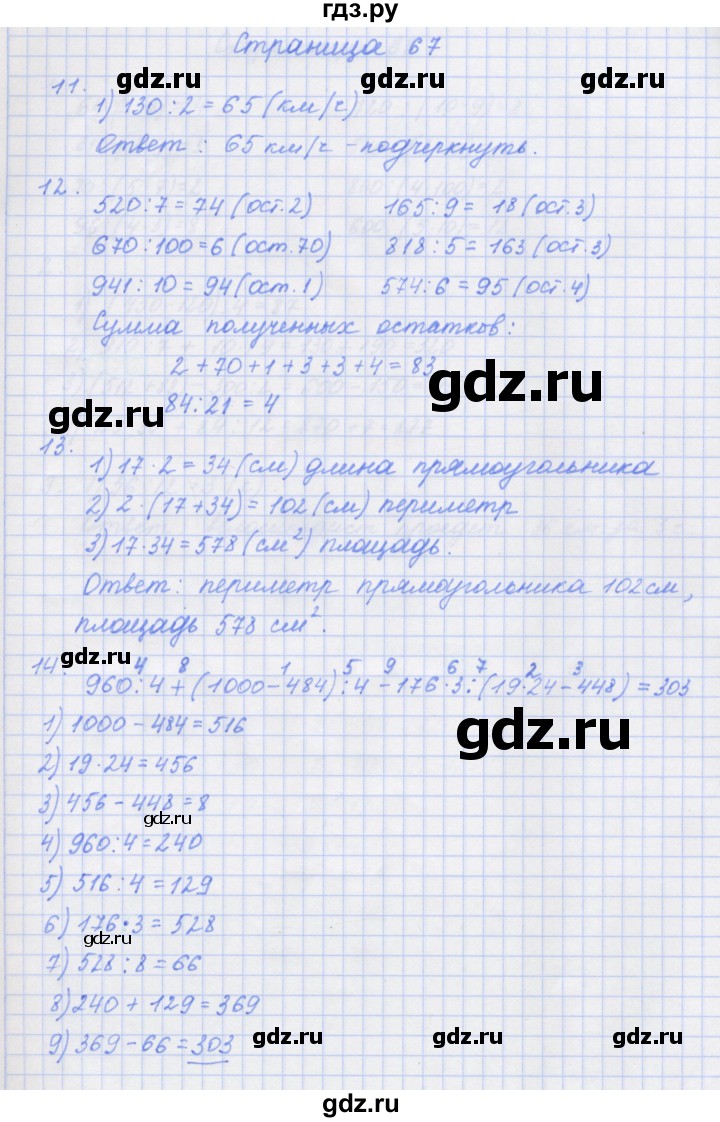 гдз.ру
Страница 67
gdz.ru gdz.ru
11.
1) 130:2=65 (км/ч)
Ответ: 65 км/ч - подчеркнуть.
12.
520:7=74 (ост.2) 165:9= 18 (ост.3)
gdz.ru gdz.ru
670:100=6 (ост.70) 818:5=163 (ост.3)
941:10=94 (ост.1) 574:6=95 (ост.4)
Сумма полученных остатков:
2+70+1+3+3+4=83
gdz.ru gdz.ru
84:21=4
13.
1) 17·2=34 (см) длина прямоугольника
2) 2·(17+34)=102 (см) периметр
gdz.ru gdz.ru
3) 17·34=578 (см²) площадь.
Ответ: периметр прямоугольника 102 см,
площадь 578 см².
gdz.ru gdz.ru gdz.ru
4 8 1 5 9 6 7 2 3
14. 960:4+(1000-484):4-176·3:(19·24-448)=303
1) 1000-484=516
gdz.ru
2) 19·24=456
3) 456-448=8
gdz.ru
4) 960:4=240
5) 516:4=129
6) 176·3=528
gdz.ru
7) 528:8=66
8) 240+129=369
9) 369-66=303
gdz.ru gdz.ru gdz.ru
gdz.ru